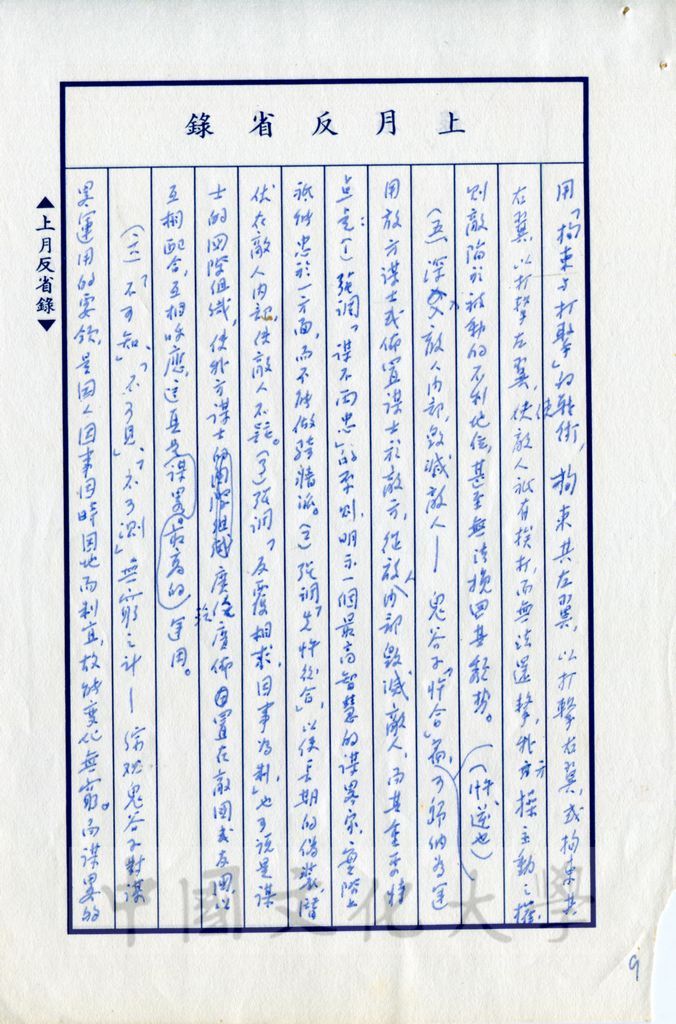 上月反省錄
用「拘束與打擊」的戰術，拘束其左翼，以打擊右翼，或拘束其
右翼，以打擊左翼，使敵人祇有挨打，而無法還擊，我方操主動之權，
則敵陷於被動的不利地位，甚至無法挽回其頹勢。
（五）深入敵人內部，毀滅敵人——鬼谷子「忤合」篇，（忤，逆也）可歸納為運
用敵方謀士或佈置謀士於敵方，從敵人內部毀滅敵人，而其重要特
點是：(1)強調「謀不兩忠」的原則，明示一個最高智慧的謀略家，實際上
祇能忠於一方面，而不能做騎牆派。(2)強調「先忤後合」，以使長期的偽裝潛
伏在敵人內部使敵人不疑。(3)強調「反覆相求，因事為制」，也可說是謀
士的國際組織，使我方謀士廣泛佈置在敵國或友國，以
互相配合，互相呼應，這真是謀略最高的運用。
（六）「不可知」、「不可見」、「不可測」無窮之計——綜觀鬼谷子對謀
略運用的要領，是因人因事因時因地而制宜，故能變化無窮。而謀略的
▲上月反省錄▼
9
中國文化大學